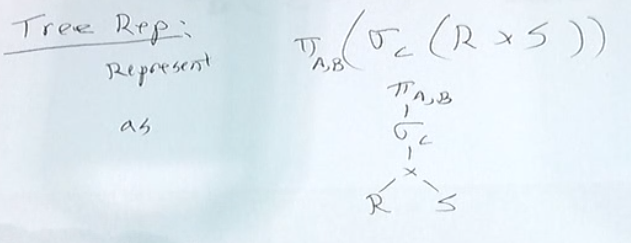 Tree Rep:
Represent π A,B (σ c (R × S))
as
π A,B
σ c
×
R S